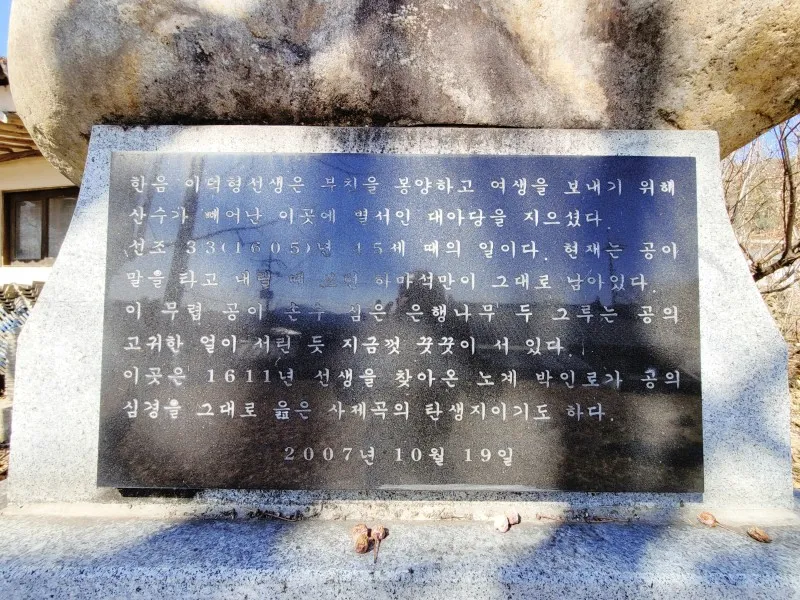 한음 이덕형선생은 부친을 봉양하고 여생을 보내기 위해
산수가 빼어난 이곳에 별서인 대아당을 지으셨다.
선조 33(1605)년 45세 때의 일이다. 현재는 공이
말을 타고 내릴 때 쓰던 하마석만이 그대로 남아있다.
이 무렵 공이 손수 심은 은행나무 두 그루는 공의
고귀한 얼이 서린 듯 지금껏 꿋꿋이 서 있다.
이곳은 1611년 선생을 찾아온 노계 박인로가 공의
심경을 그대로 읊은 사제곡의 탄생지이기도 하다.
2007년 10월 19일